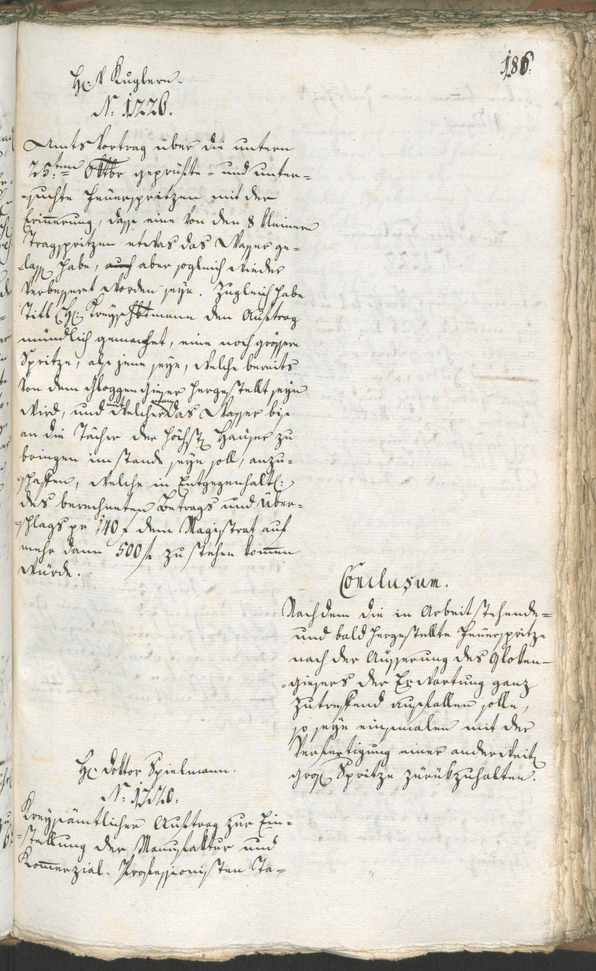 186.
H: v Kuglern.
N: 1226.
Amts Vortrag über die untern
25:ten 8ttbr geprüfte - und unter-
suchte Feuerspritzen mit der
Erinnerung, dass eine von den 8 kleinern
Tragspritzen etwas das Wasser ge-
lass habe, auch aber sogleich wieder
verbessert worden seÿe. Zugleich habe
Titl H: Kreÿshbtmann den Auftrag
mündlich gemacht, eine noch grössere
Spritze, als jene seÿe, welche bereits
von dem Gloggengieser hergestellt seÿn
wird, und welche das Wasser bis
an die Tächer der höchst: Häuser zu
bringen im stande seÿn soll, anzu-
schaffen, welche in Entgegenhalt:
des berechneten Betrags und Über-
schlags pr 140 f dem Magistrat auf
mehr dann 500 f zu stehen kommen
würde.
Conclusum.
Nachdem die in Arbeit stehende
und bald hergestellte Feuerspritze
nach der Äusserung des Gloken-
giesers der Erwartung ganz
zutreffend ausfallen solle,
so seÿe einsmalen mit der
Verfertigung einer anderweit:
gros: Spritze zurükzuhalten.
H: Doktor Spielmann.
N: 1228.
Kreÿsämtlicher Auftrag zur Ein-
stellung der Manufaktur und
Kommerzial-Professionisten Ta-